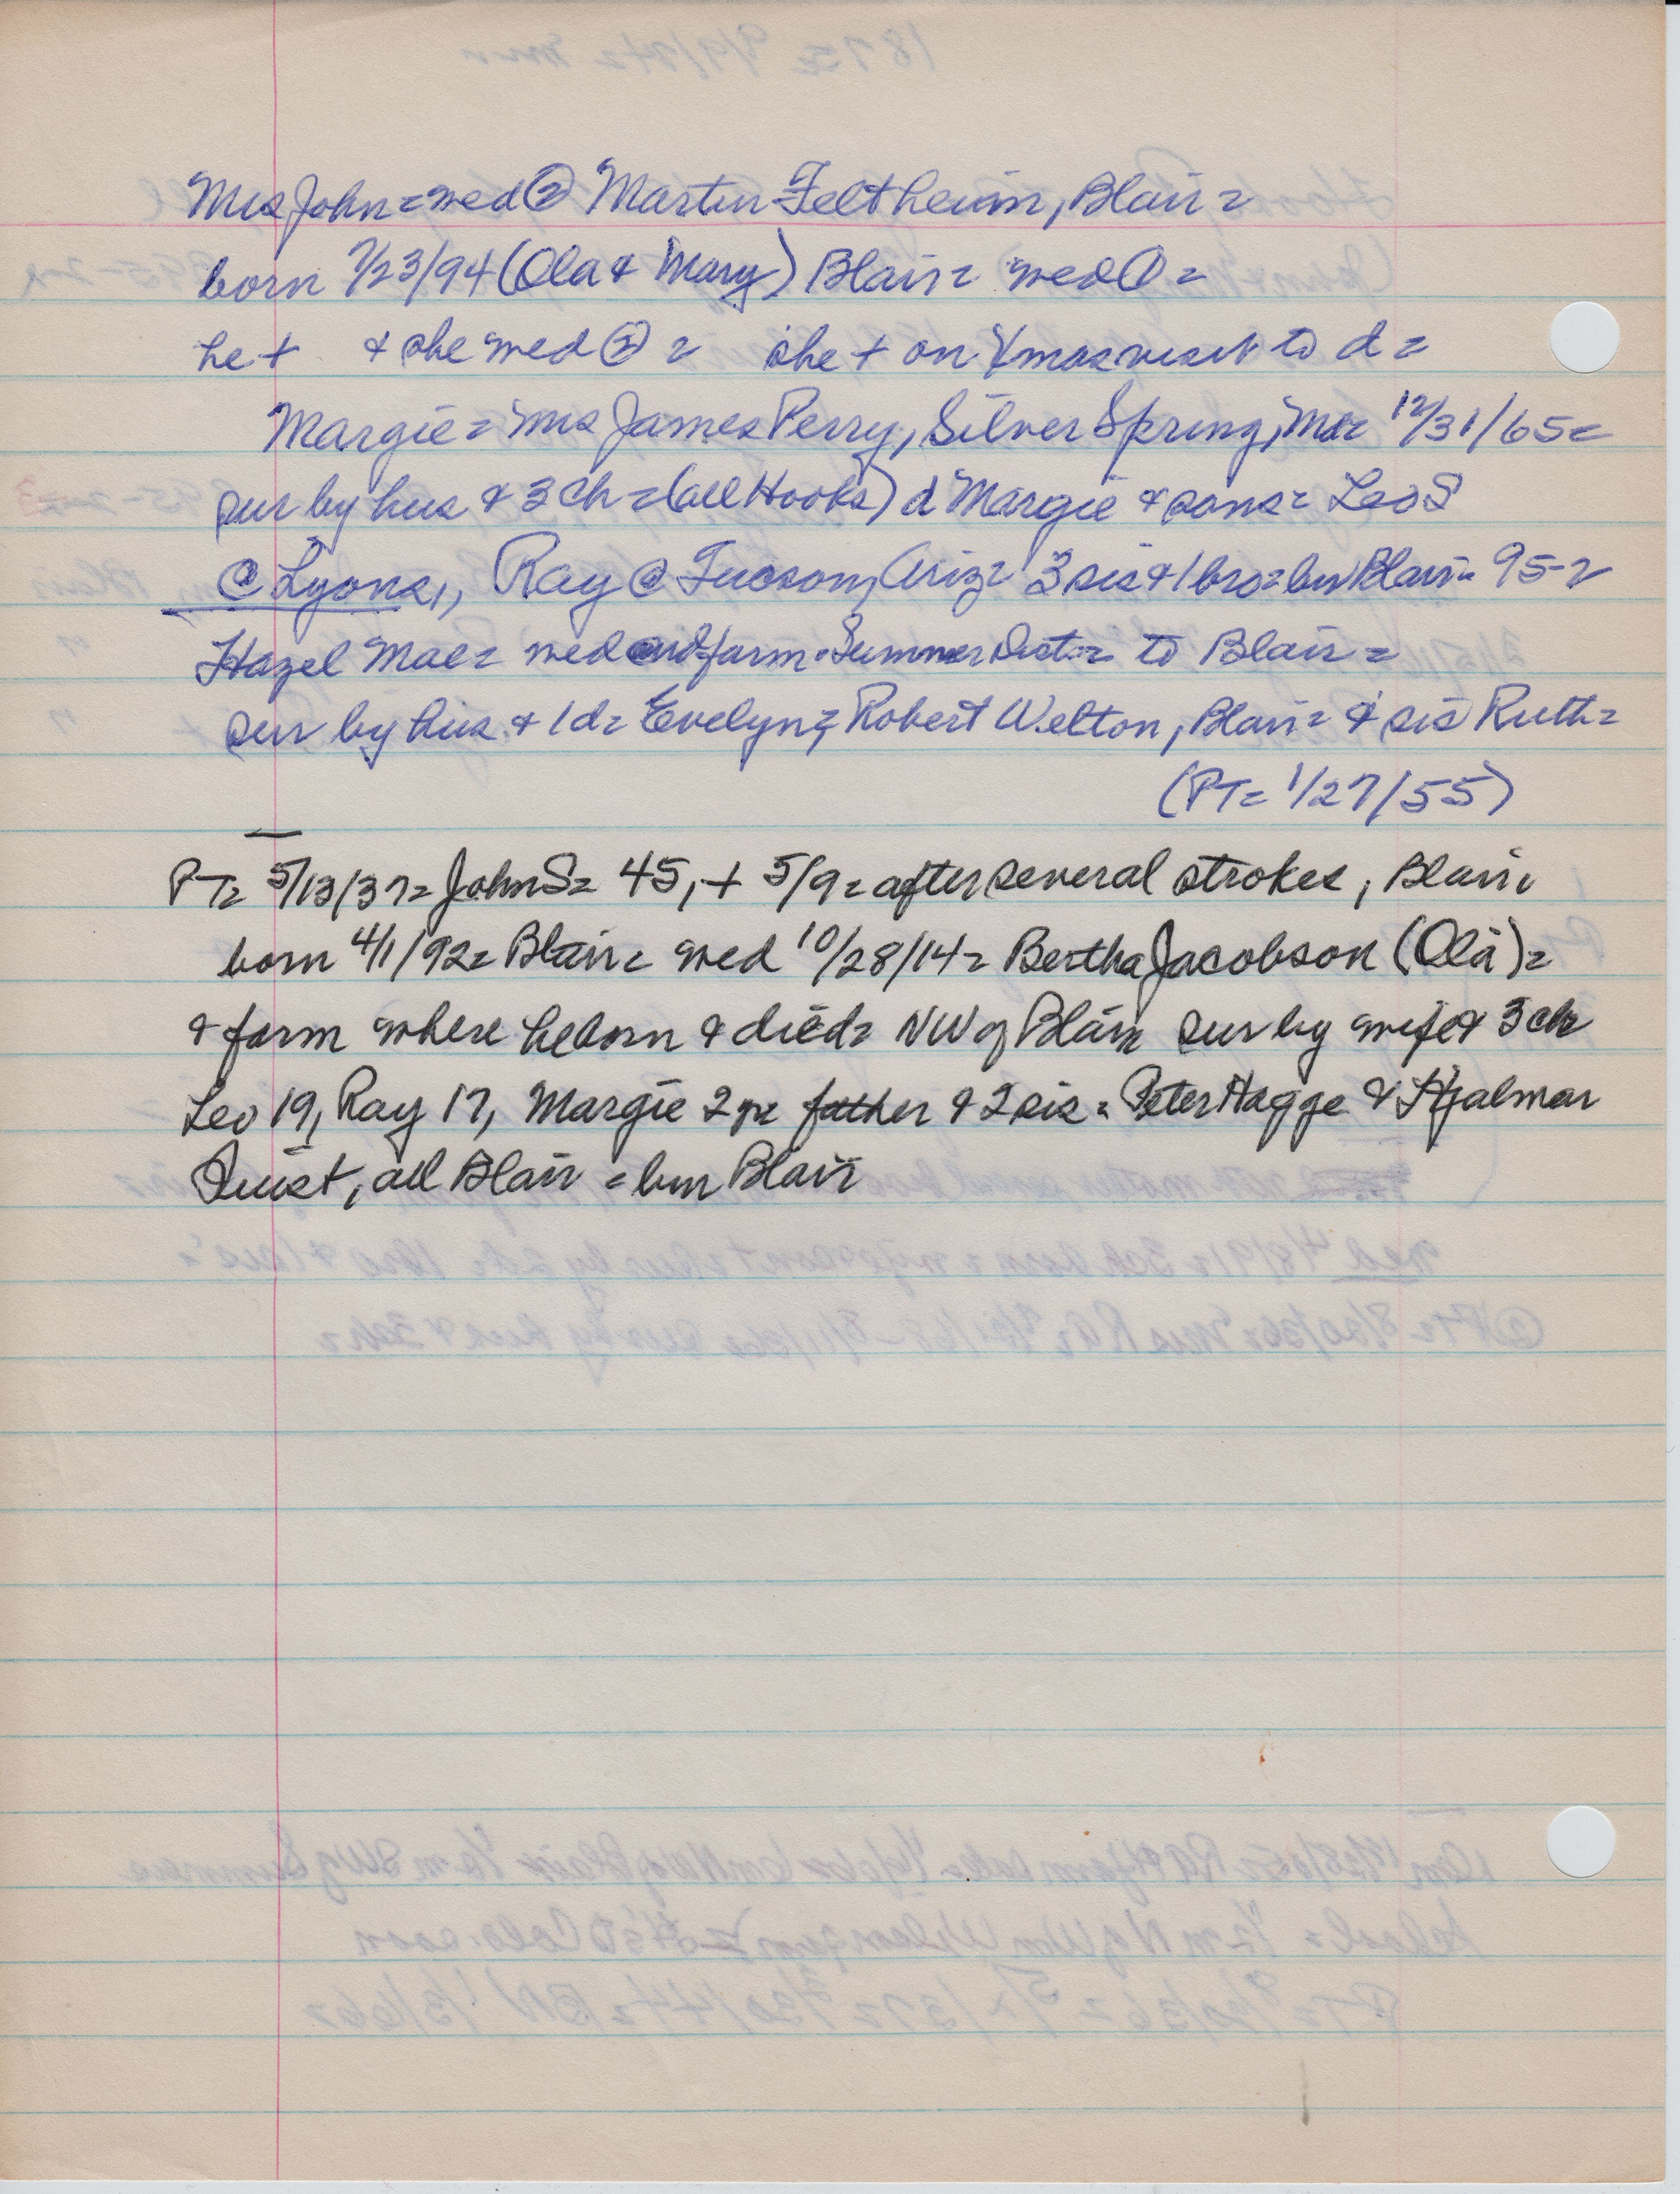 Mrs John = med ② Martin Feltheim, Blair =
born 7/23/94 (Ola & Mary) Blair = med ① =
he + & she med ② = she + on Xmas visit to d =
Margie = Mrs James Perry, Silver Spring, Md = 12/31/65 =
sur by hus & 3 ch = (all Hooks) d Margie & sons = Leo S
@ Lyons,, Ray @ Tucson, Ariz = 3 sis & 1 bro = bur Blair = 95 - 2
Hazel Mae = med and farm - Summer Dist = to Blair =
sur by hus & 1 d = Evelyn = Robert Welton, Blair = & sis Ruth =
(PT = 1/27/55)
PT = 5/13/37 = John S = 45, + 5/9 = after several strokes, Blair,
born 4/1/92 = Blair = med 10/28/14 = Bertha Jacobson (Ola) =
& farm where he born & died = NW of Blair sur by wife & 3 ch
Leo 19, Ray 17, Margie 2 father & 2 sis = Peter Hagge & Hjalmar
Quist, all Blair = bur Blair